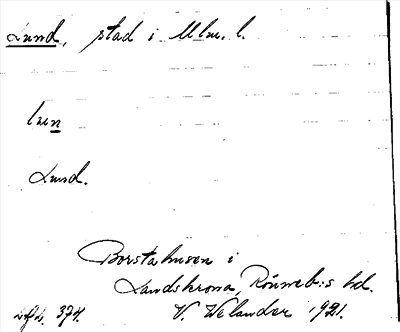 Lund, stad i Mlm. l.
lun
Lund.
Borstahusen i
Landskrona, Rönneb:s hd.
V. Welander 1921.
374.